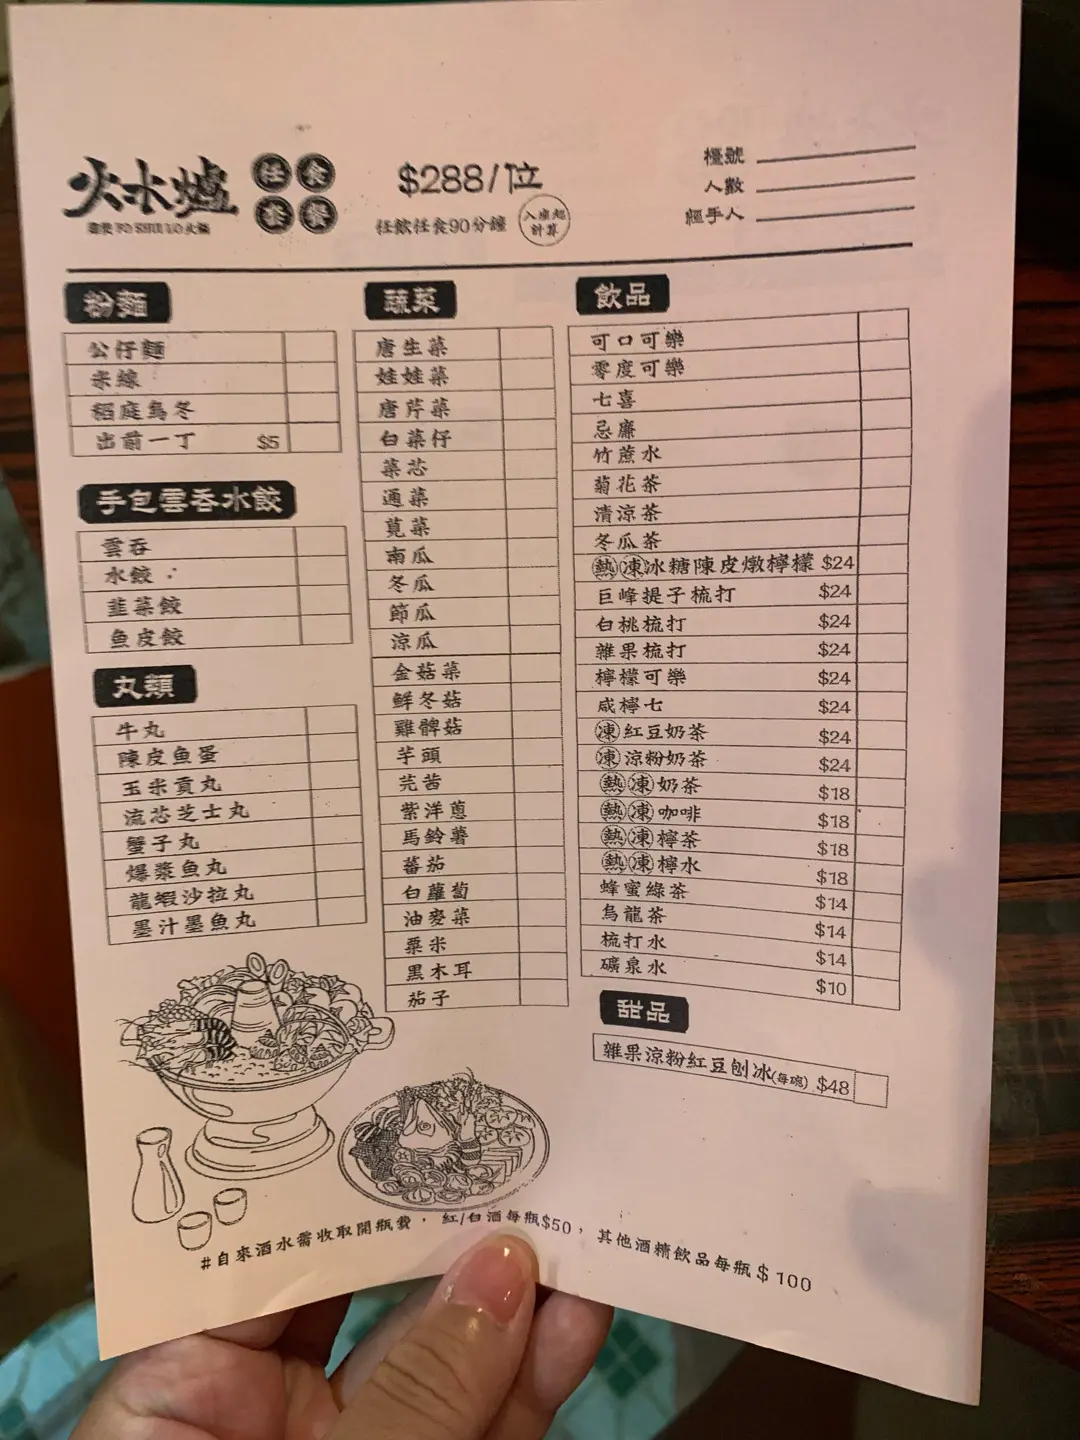 火水爐
任食套餐
$288/位
任飲任食90分鐘
入座起計算
檯號
人數
經手人
粉麵
公仔麵
米線
稻庭烏冬
出前一丁 $5
手包雲吞水餃
雲吞
水餃
韮菜餃
魚皮餃
丸類
牛丸
陳皮魚蛋
玉米貢丸
流芯芝士丸
蟹子丸
爆漿魚丸
龍蝦沙拉丸
墨汁墨魚丸
蔬菜
唐生菜
娃娃菜
唐芹菜
白菜仔
菜芯
通菜
莧菜
南瓜
冬瓜
節瓜
涼瓜
金菇菜
鮮冬菇
雞髀菇
芋頭
芫茜
紫洋蔥
馬鈴薯
蕃茄
白蘿蔔
油麥菜
粟米
黑木耳
茄子
飲品
可口可樂
零度可樂
七喜
忌廉
竹蔗水
菊花茶
清涼茶
冬瓜茶
熱凍冰糖陳皮燉檸檬 $24
巨峰提子梳打 $24
白桃梳打 $24
雜果梳打 $24
檸檬可樂 $24
咸檸七 $24
凍紅豆奶茶 $24
凍涼粉奶茶 $24
熱凍奶茶 $18
熱凍咖啡 $18
熱凍檸茶 $18
熱凍檸水 $18
蜂蜜綠茶 $14
烏龍茶 $14
梳打水 $14
礦泉水 $10
甜品
雜果涼粉紅豆刨冰(每碗) $48
#自來酒水需收取開瓶費，紅/白酒每瓶$50，其他酒精飲品每瓶$100